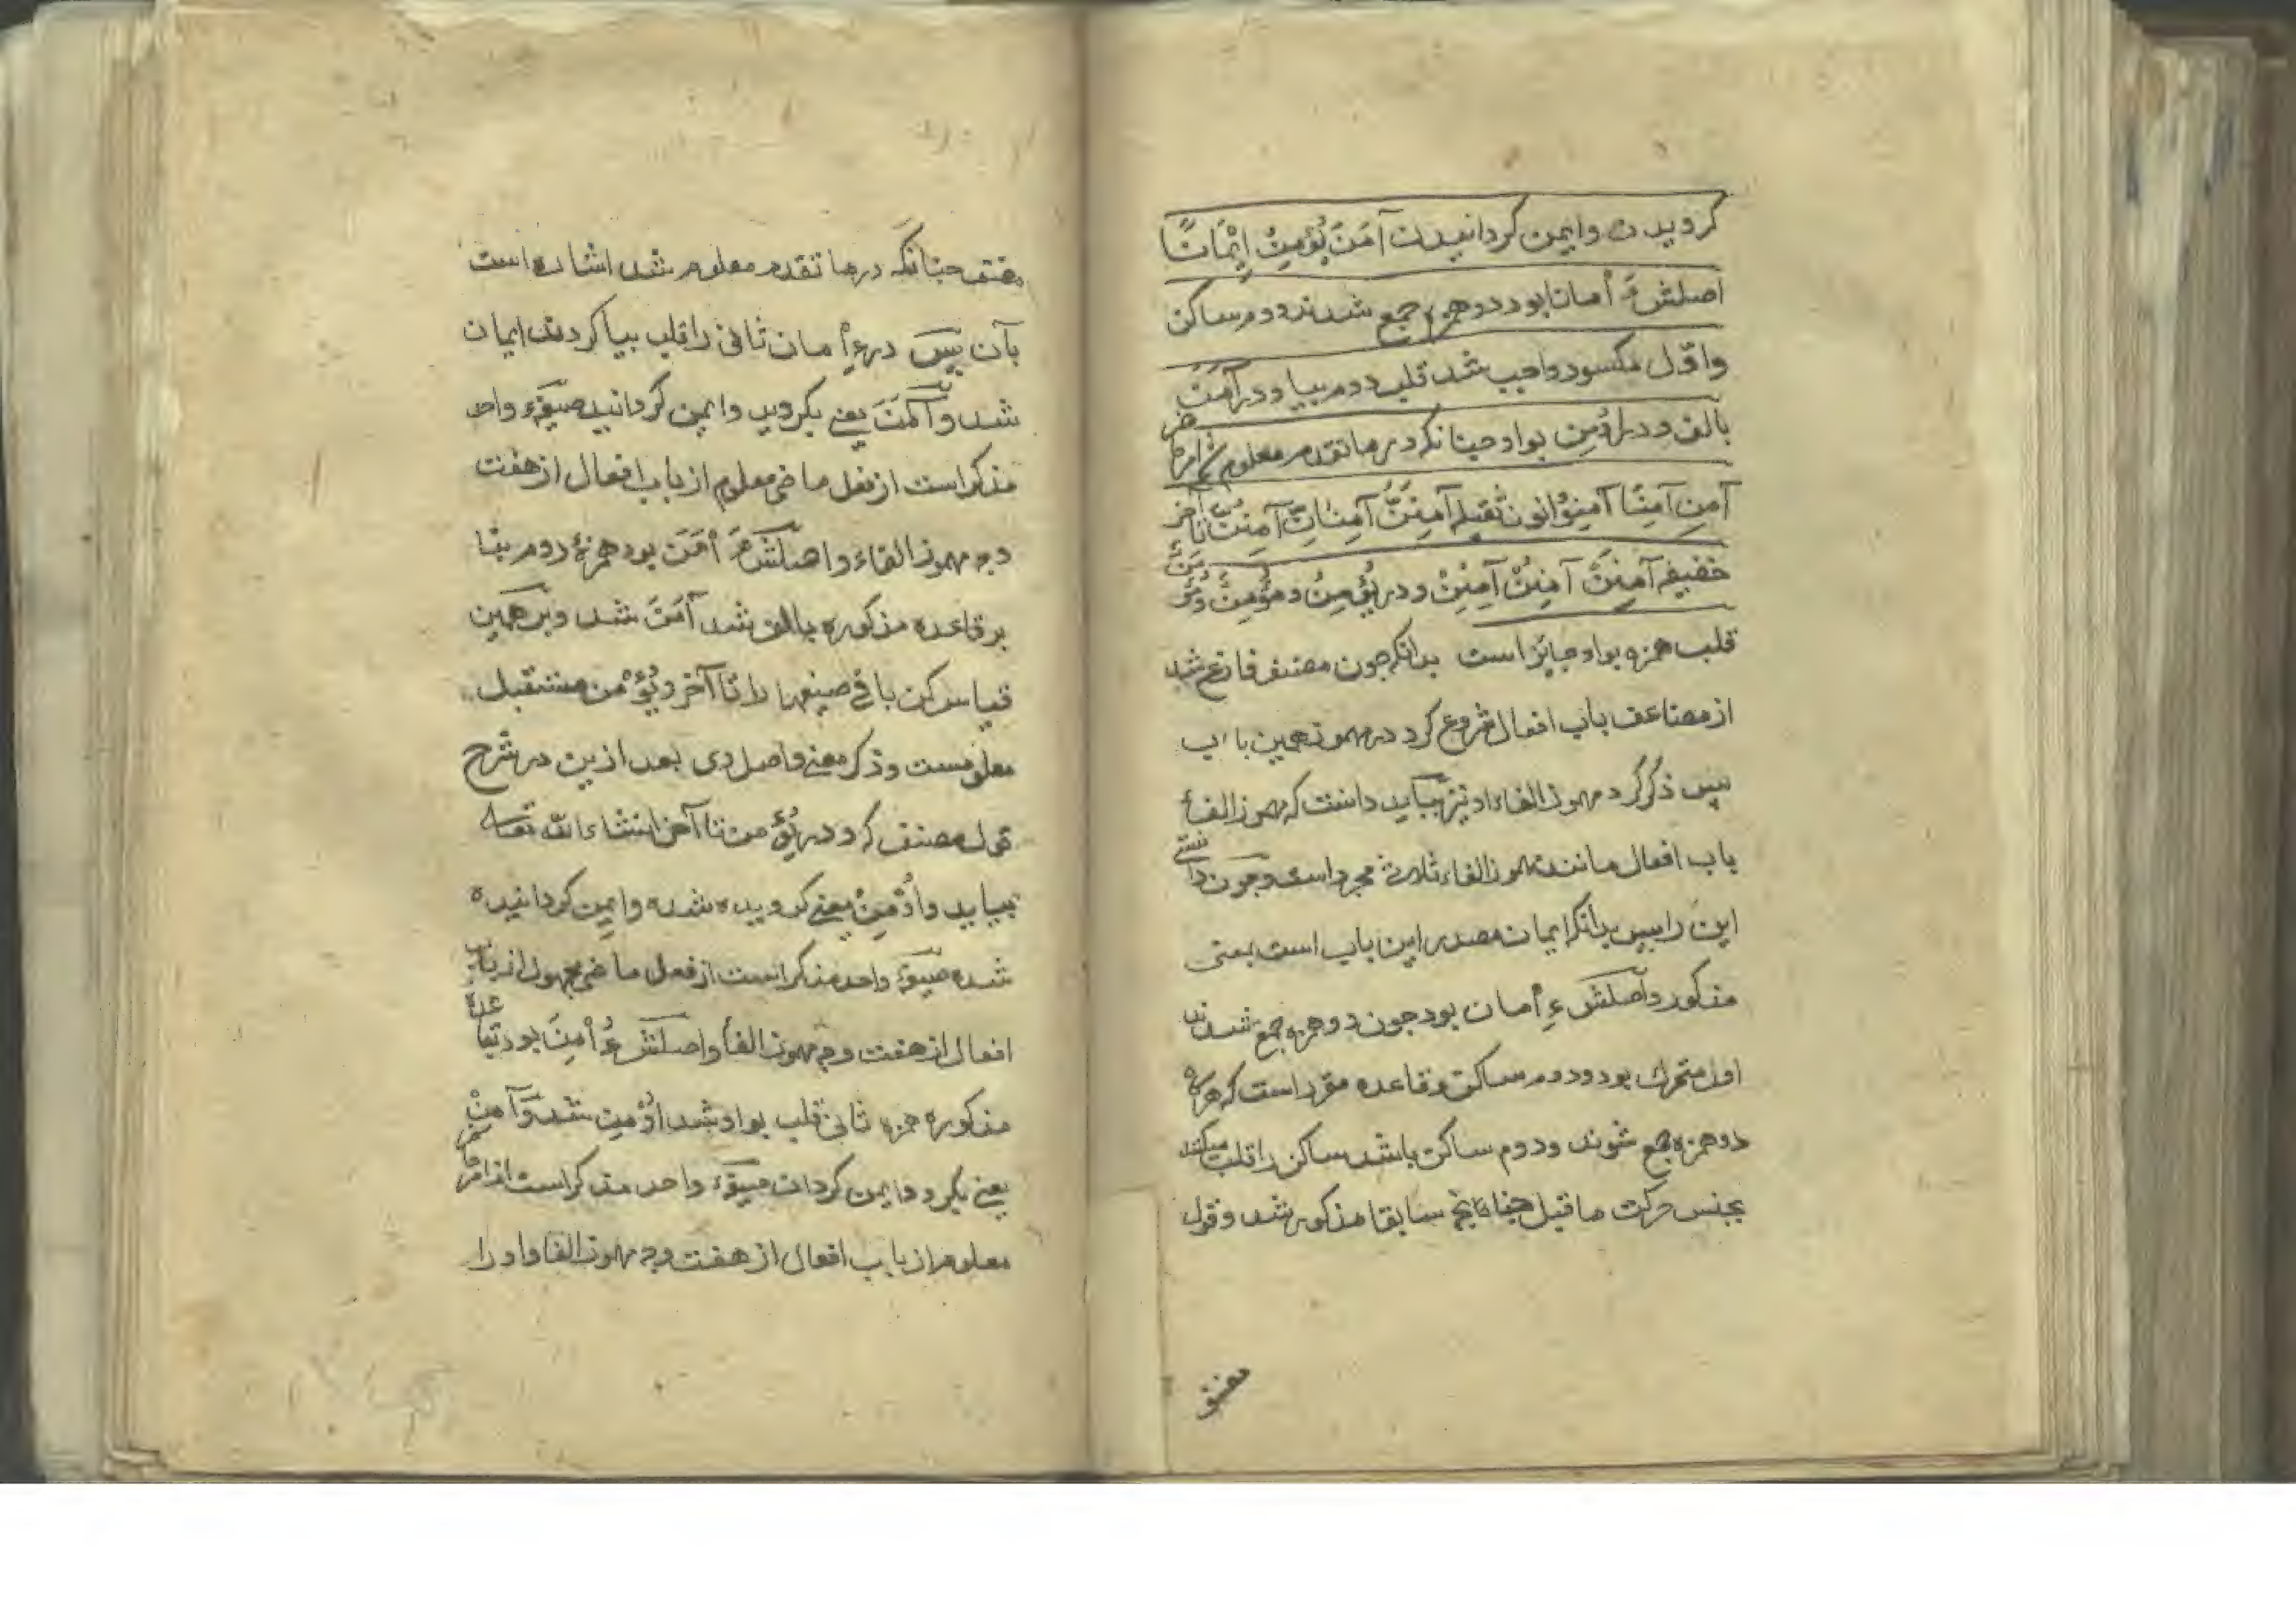 گرویدن وایمن گردانیدن آمَنَ یُؤْمِنُ اِیْمَانًا
اصلش ءِ أْمانا بود دو همزه جمع شدند دوم ساکن
واوّل مکسور واجب شد قلب دوم بیا و در آمَنَ
بالف و در اُوْمِنَ بواو چنانکه در ما تقدم معلوم شد امر حاضر
آمِنْ آمِنَا آمِنُوْا نون ثقیله آمِنَنَّ آمِنَانِّ آمِنُنَّ تا آخر
خفیفه آمِنَنْ آمِنُنْ آمِنِنْ و در یُؤْمِنُ و مُؤْمِنٌ و مُؤْمَنٌ
قلب همزه بواو جائز است بدانکه چون مصنف فارغ شد
از مضاعف باب افعال شروع کرد در مهموز همین باب
پس ذکر کرد مهموز الفاء او نیز بباید دانست که مهموز الفاء
باب افعال مانند مهموز الفاء ثلاثی مجرد است و چون دانستی
این را پس بدانکه ایمان مصدر این باب است بمعنی
مذکور و اصلش ءِ أْمان بود چون دو همزه جمع شدند
اول متحرک بود و دوم ساکن و قاعده مقرر است که هرگاه
دو همزه جمع شوند و دوم ساکن باشد ساکن را قلب میکنند
بجنس حرکت ما قبل چنانچه سابقا مذکور شد و قول
مصنف
مصنف چنانکه در ما تقدم معلوم شد اشاره است
بآن پس در ءِ أْمان ثانی را قلب بیا کردند ایمان
شد و آمَنَ یعنی بگروید و ایمن گردانید صیغهٔ واحد
مذکر است از فعل ماضی معلوم از باب افعال از هفت
وجه مهموز الفاء و اصلش ءَ أْمَنَ بود همزهٔ دوم بنا
بر قاعده مذکوره بالف شد آمَنَ شد و بر همین
قیاس کن باقی صیغها را تا آخر و یُؤْمن مستقبل
معلومست و ذکر معنی و اصل وی بعد ازین در شرح
قول مصنف که و در یُؤْمن تا آخر انشاء الله تعالی
بیاید و اُوْمِنَ یعنی گرویده شده و ایمن گردانیده
شده صیغهٔ واحد مذکر است از فعل ماضی مجهول از باب
افعال از هفت وجه مهموز الفاء و اصلش ءُ أْمِنَ بود بقاعدهٔ
مذکوره همزه ثانی قلب بواو شد اُوْمِنَ شد و آمِنْ
یعنی بگرو و ایمن گردان صیغهٔ واحد مذکر است از امر حاضر
معلوم از باب افعال از هفت وجه مهموز الفا و او را